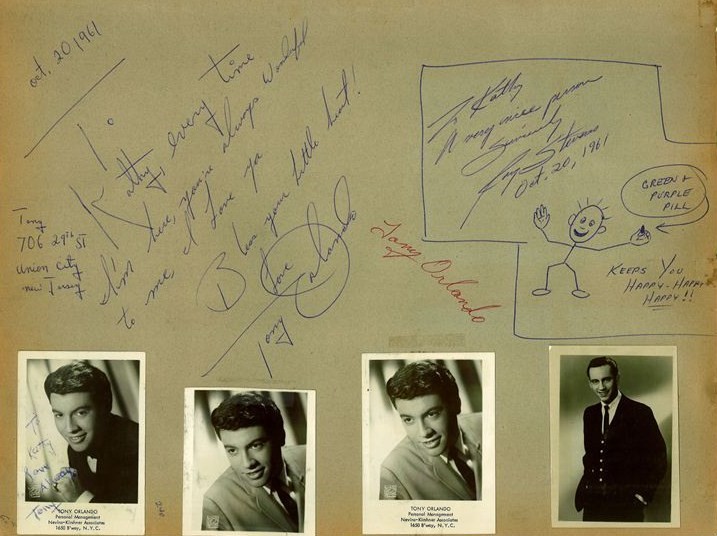 Oct. 20 1961
To
Kathy, every time
I'm here, you're always wonderful
to me, I love ya
Bless your little heart!
Love
Tony Orlando
Tony
706 29th ST
Union City
New Jersey
Tony Orlando
To Kathy
A very nice person
Sincerely
Ray Stevens
Oct. 20, 1961
GREEN &
PURPLE
PILL
KEEPS YOU
HAPPY-HAPPY
HAPPY!!
To
Tony
TONY ORLANDO
Personal Management
Nevins-Kirshner Associates
1650 B'way, N. Y. C.
TONY ORLANDO
Personal Management
Nevins-Kirshner Associates
1650 B'way, N. Y. C.